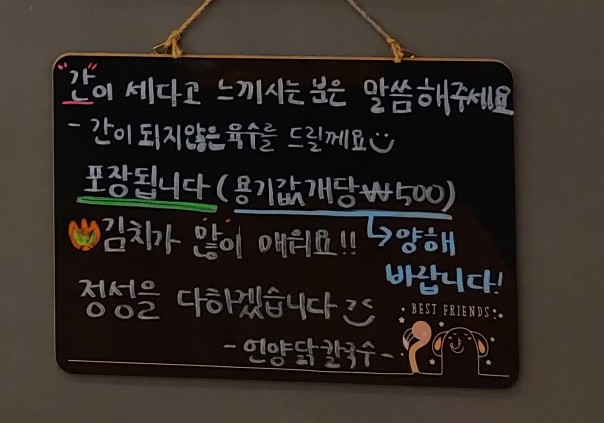 "간"이 세다고 느끼시는 분은 말씀해주세요
- 간이 되지않은 육수를 드릴께요
포장됩니다 (용기값 개당 ₩500)
↳양해
바랍니다!
김치가 많이 매워요!!
정성을 다하겠습니다
BEST FRIENDS
- 언양닭칼국수 -